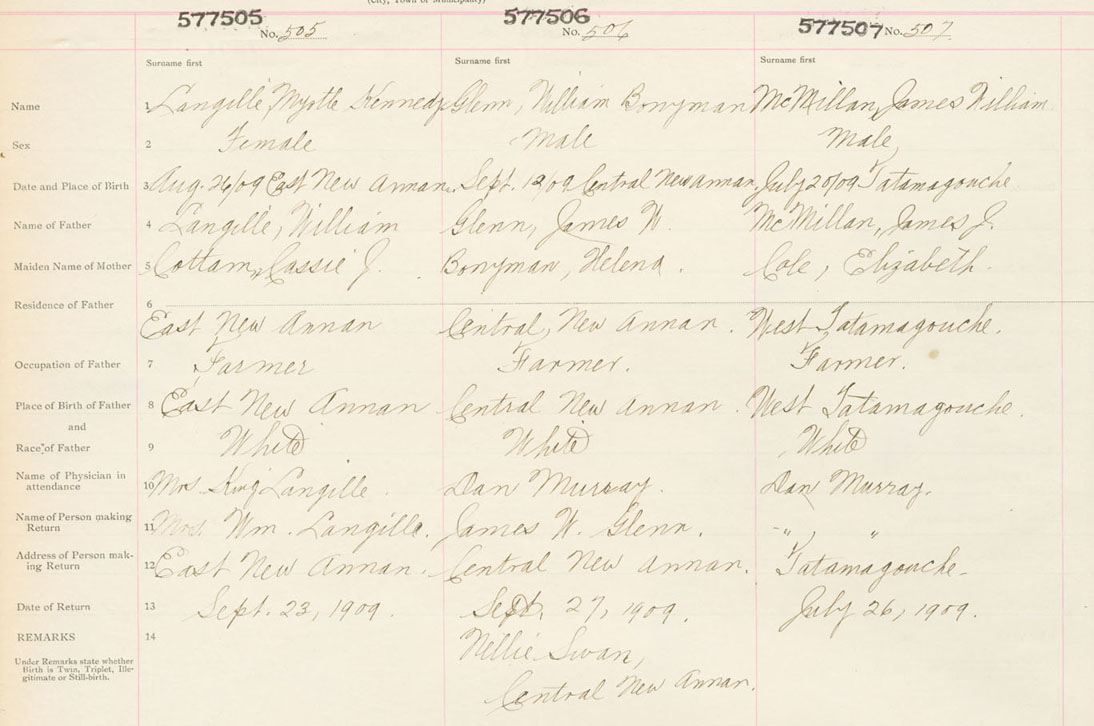 (City, Town or Municipality)
577505 577506 577507
No. 505 No. 506 No. 507
Surname first Surname first Surname first
Name 1 Langille, Myrtle Kennedy Glenn, William Bonyman McMillan, James William
Sex 2 Female Male Male
Date and Place of Birth 3 Aug. 26/09 East New Annan. Sept. 12/09 Central New Annan, July 20/09 Tatamagouche
Name of Father 4 Langille, William Glenn, James W. McMillan, James J.
Maiden Name of Mother 5 Cottam, Cassie J. Bonyman, Helena. Cole, Elizabeth.
Residence of Father 6
East New Annan Central, New Annan. West Tatamagouche.
Occupation of Father 7 Farmer Farmer. Farmer.
Place of Birth of Father 8 East New Annan Central New Annan. West Tatamagouche.
and
Race of Father 9 White White White
Name of Physician in
attendance 10 Mrs. King Langille. Dan Murray. Dan Murray.
Name of Person making
Return 11 Mrs. Wm. Langille. James W. Glenn. " "
Address of Person mak-
ing Return 12 East New Annan. Central New Annan. Tatamagouche
Date of Return 13 Sept. 23, 1909. Sept. 27, 1909. July 26, 1909.
REMARKS 14
Under Remarks state whether
Birth is Twin, Triplet, Ille-
gitimate or Still-birth.
Nellie Swan,
Central New Annan.